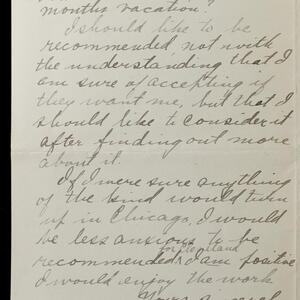 months vacation?
I should like to be
recommended, not with
the understanding that I
am sure of accepting if
they want me, but that I
should like to consider it
after finding out more
about it.
If I were sure anything
of the kind would turn
up in Chicago, I would
be less anxious to be
recommended for
I am positive
I would enjoy the work
Yours